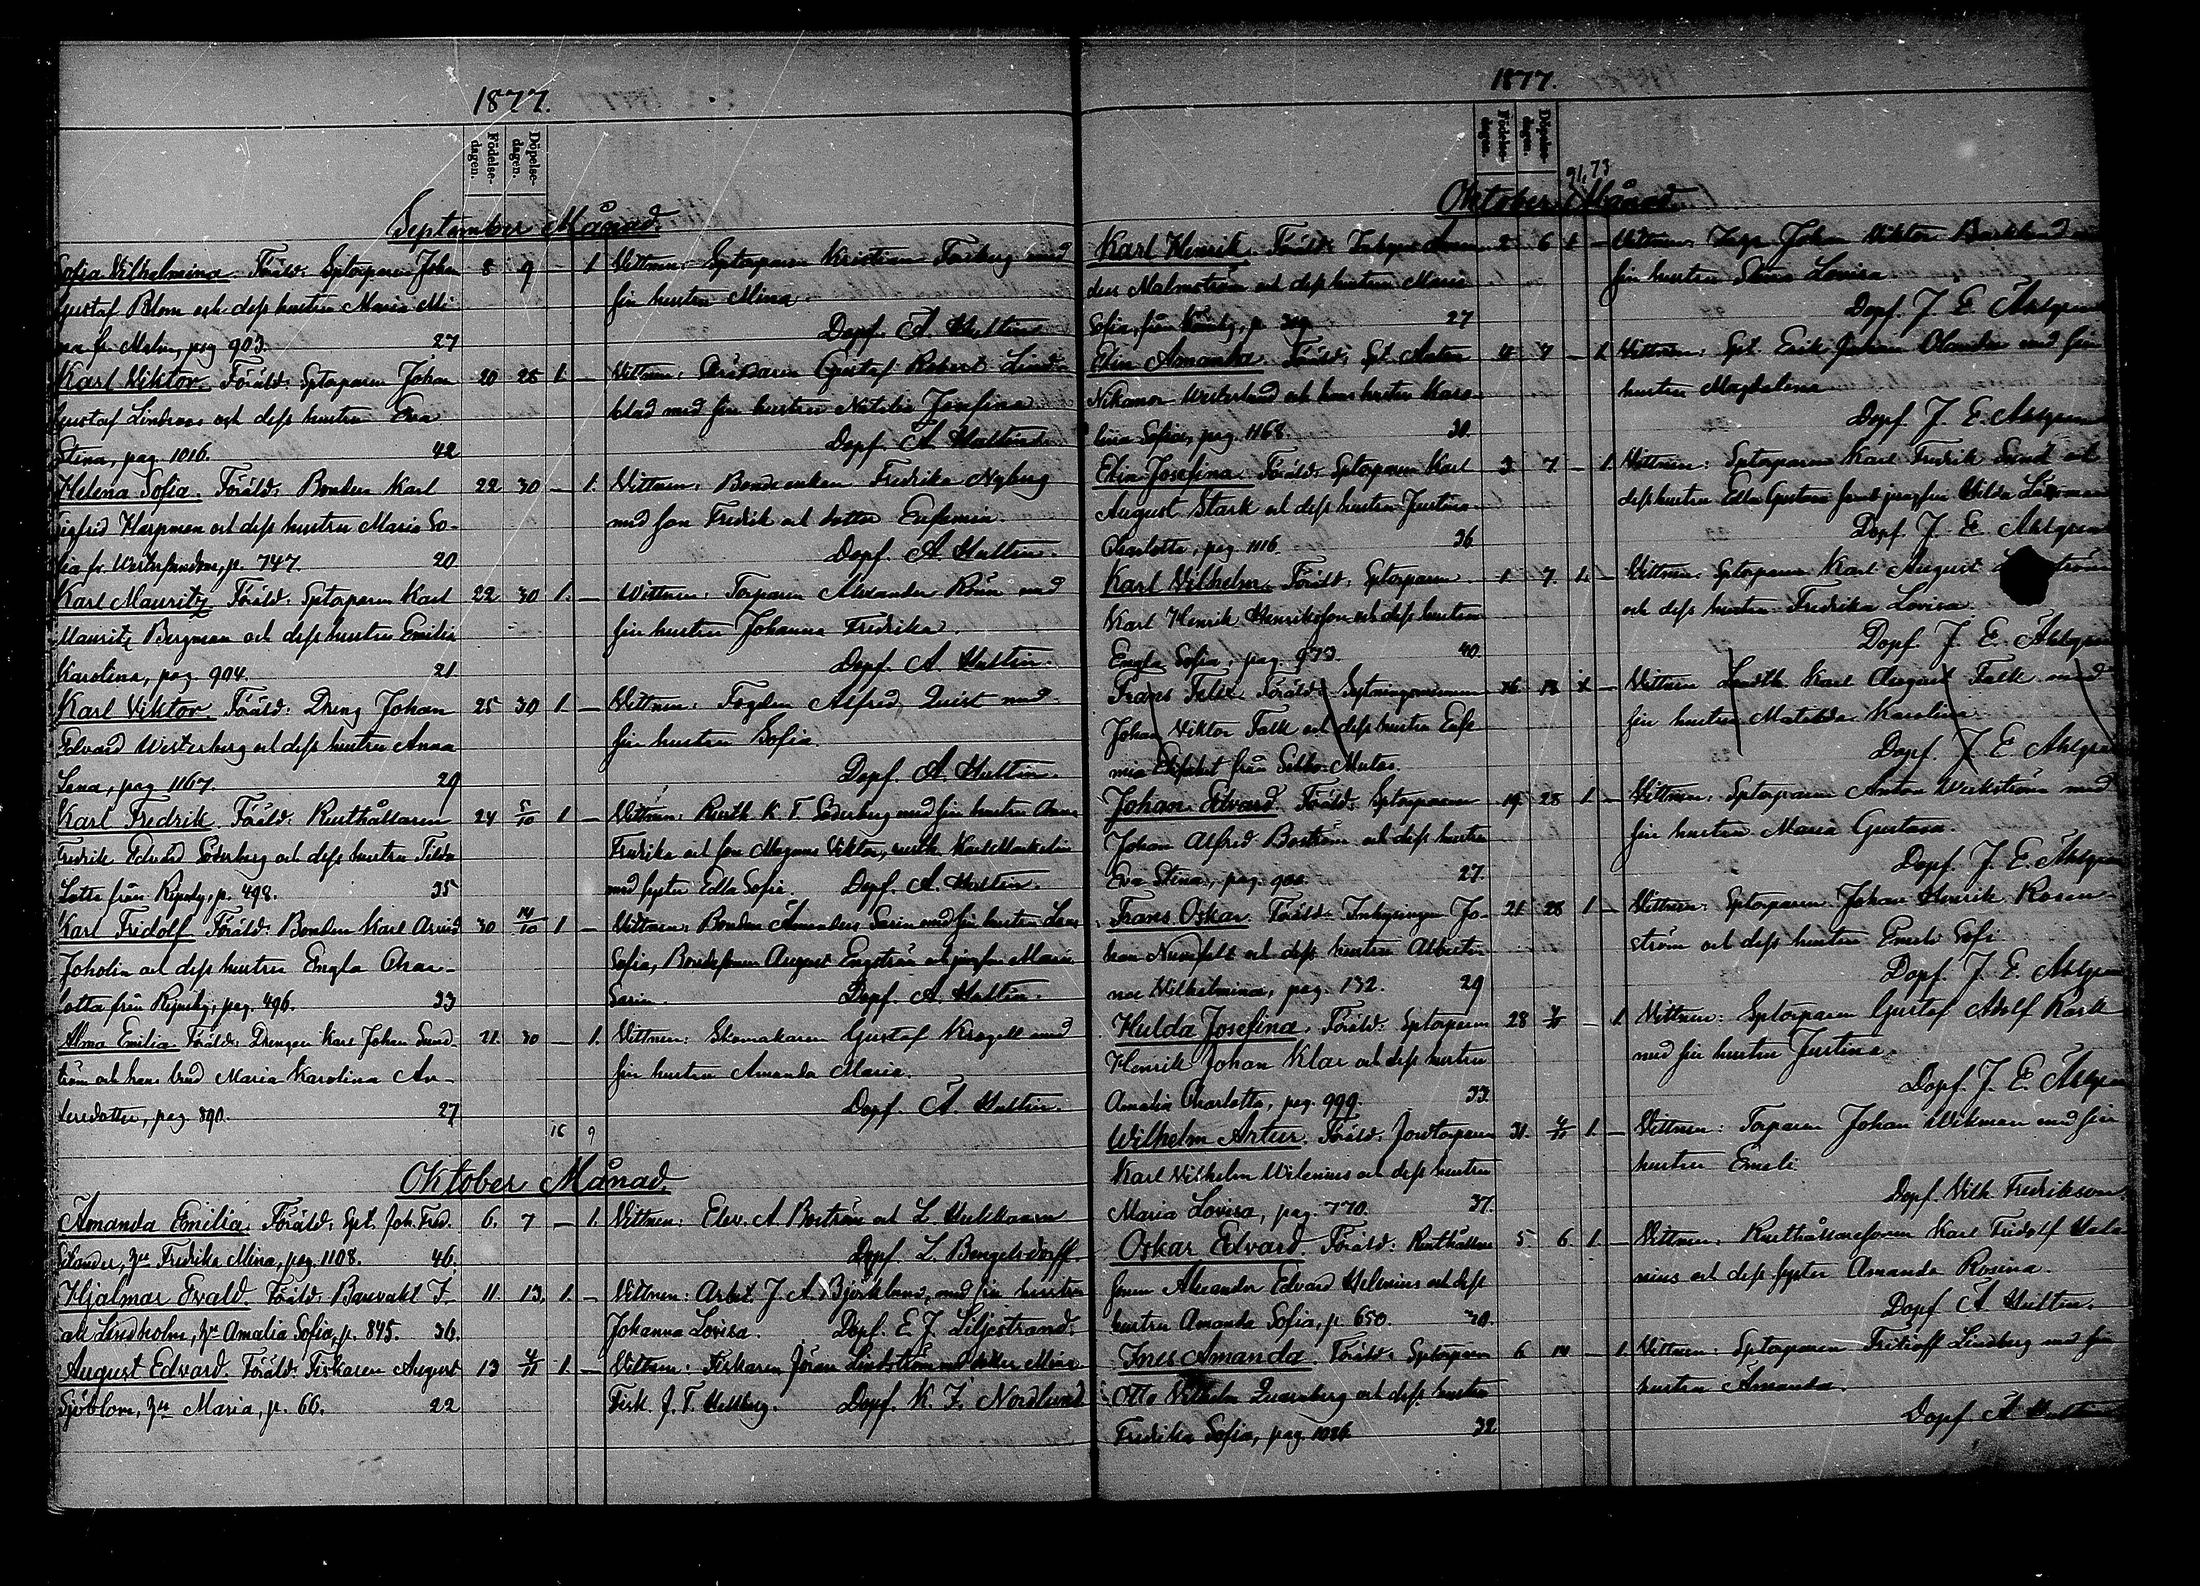 1877.
Födelse-dagen.
Döpelse-dagen.
September Månad.
Sofia Vilhelmina. Föräld: Sptorparen Johan 8 9 — 1.
Gustaf Blom och dess hustru Maria Mi-
na fr. Malm, pag 903. 27
Vittnen: Sptorparen Kristian Forsberg med
sin hustru Mina.
Döpf. A. Hultin.
Karl Viktor. Föräld: Sptorparen Johan 20 25 1. —
Gustaf Lindroos och dess hustru Eva
Stina, pag. 1016. 42
Vittnen: Skräddaren Gustaf Robert Lind-
blad med sin hustru Natalia Josefina
Döpf. A. Hultin.
Helena Sofia. Föräld: Bonden Karl 22 30 — 1.
Sigfrid Harpman och dess hustru Maria So-
fia fr. p. 747. 20
Vittnen: Bondeenkan Fredrika Nyberg
med son Fredrik och dotter Eufemia.
Döpf. A. Hultin.
Karl Mauritz. Föräld: Sptorparen Karl 22 30 1. —
Mauritz Bergman och dess hustru Emilia
Karolina, pag. 904. 21
Vittnen: Torparen Alexander Rönn med
sin hustru Johanna Fredrika.
Döpf. A. Hultin.
Karl Viktor. Föräld: Dreng Johan 25 30 1. —
Edvard Westerberg och dess hustru Anna
Lena, pag 1167. 29
Vittnen: Fogden Alfred Quist med
sin hustru Sofia.
Döpf. A. Hultin.
Karl Fredrik. Föräld: Rusthållaren 24 5/10 1 —
Fredrik Edvard Söderberg och dess hustru Tilda
Lotta från Ripuby, p. 498. 35
Vittnen: Rusth. K. F. Söderberg med sin hustru Anna
Fredrika och son Magnus Viktor, rusth.
med syster Edla Sofia. Döpf. A. Hultin.
Karl Fridolf. Föräld: Bonden Karl Arvid 30 14/10 1 —
Joholin och dess hustru Engla Char-
lotta från Ripuby, pag. 496. 33
Vittnen: Bonden Amandus Sarin med sin hustru Lena
Sofia, Bondesonen August Engström och jungfru Maria
Sarin. Döpf. A. Hultin.
Alma Emilia. Föräld: Drengen Karl Johan Sund- 21. 30 — 1.
ström och hans brud Maria Karolina An-
dersdotter, pag. 890. 27
Vittnen: Skomakaren Gustaf Krogell med
sin hustru Amanda Maria.
Döpf. A. Hultin.
16 9
Oktober Månad.
Amanda Emilia. Föräld: Spt. Joh. Fred. 6. 7 — 1.
Selander, hu Fredrika Mina, pag. 1108. 40.
Vittnen: Elev. A. Boström och L.
Döpf. L. Bengelsdorff.
Hjalmar Evald. Föräld: Banvakt F. 11 13. 1. —
Lindholm, hu Amalia Sofia, p. 845. 36.
Vittnen: Arbet. J. A. Björklund, med sin hustru
Johanna Lovisa. Döpf. E. J. Liljestrand.
August Edvard. Föräld: Fiskaren August 13 4/11 1. —
Sjöblom, hu Maria, p. 66. 22
Vittnen: Fiskaren Jöran Lindström med dotter Mina
Fisk. J. F. Hellberg. Döpf. K. F. Nordlund
1877.
Födelse-dagen.
Döpelse-dagen.
91. 73
Oktober Månad.
Karl Henrik. Föräld: Inhyses Aman- 2 6 1 —
deus Malmström och dess hustru Maria
Sofia, från p. 27
Vittnen: Inhys. Johan Viktor Barklund med
sin hustru Stina Lovisa
Döpf. J. E. Ahlgren
Elin Amanda. Föräld: Spt. Anton 4 7 — 1.
Nikanor Westerlund och hans hustru Karo-
lina Sofia, pag. 1168. 30.
Vittnen: Spt. Erik Johan Olander med sin
hustru Magdalena
Döpf. J. E. Ahlgren
Elin Josefina. Föräld: Sptorparen Karl 3 7 — 1.
August Stark och dess hustru Justina
Charlotta, pag. 1116. 36
Vittnen: Sptorparen Karl Fredrik Sund och
dess hustru Edla Gustava samt jungfru Hilda
Döpf. J. E. Ahlgren
Karl Vilhelm. Föräld: Sptorparen 1 7. 1. —
Karl Henrik Henriksson och dess hustru
Engla Sofia, pag. 973. 40.
Vittnen: Sptorparen Karl August
och dess hustru Fredrika Lovisa.
Döpf. J. E. Ahlgren
Frans Felix. Föräld: 1 —
Johan Viktor Falk och dess hustru Eufe-
mia från Sibbo
Vittnen: Landtb. Karl August Falk med
sin hustru Matilda Karolina
Döpf. J. E. Ahlgren
Johan Edvard. Föräld: Sptorparen 19. 28 1. —
Johan Alfred Boström och dess hustru
Eva Stina, pag. 900. 27.
Vittnen: Sptorparen Anton Weckström med
sin hustru Maria Gustava.
Döpf. J. E. Ahlgren
Frans Oskar. Föräld: Inhysingen Jo- 21 28 1 —
han Numfelt och dess hustru Alberti-
na Vilhelmina, pag. 132. 29
Vittnen: Sptorparen Johan Henrik Rosen-
ström och dess hustru Emeli Sofi.
Döpf. J. E. Ahlgren
Hulda Josefina. Föräld: Sptorparen 28 — 1.
Henrik Johan Klar och dess hustru
Amalia Charlotta, pag. 999. 33.
Vittnen: Sptorparen Gustaf Adolf Rask
med sin hustru Justina.
Döpf. J. E. Ahlgren
Wilhelm Artur. Föräld: Jordtorparen 31. 1. —
Karl Vilhelm Wilenius och dess hustru
Maria Lovisa, pag. 770. 37.
Vittnen: Torparen Johan Wikman med sin
hustru Emeli
Döpf. Vilh. Fredrikson.
Oskar Edvard. Föräld: Rusthållare 5. 6 1. —
sonen Alexander Edvard Helenius och dess
hustru Amanda Sofia, p. 650. 30.
Vittnen: Rusthållaresonen Karl Fridolf Hele-
nius och dess syster Amanda Rosina.
Döpf. A. Hultin.
Ines Amanda. Föräld: Sptorparen 6 14 — 1.
Otto Vilhelm Quarnberg och dess hustru
Fredrika Sofia, pag. 1086. 32
Vittnen: Sptorparen Fritioff Lindberg med sin
hustru Amanda.
Döpf. A. Hultin